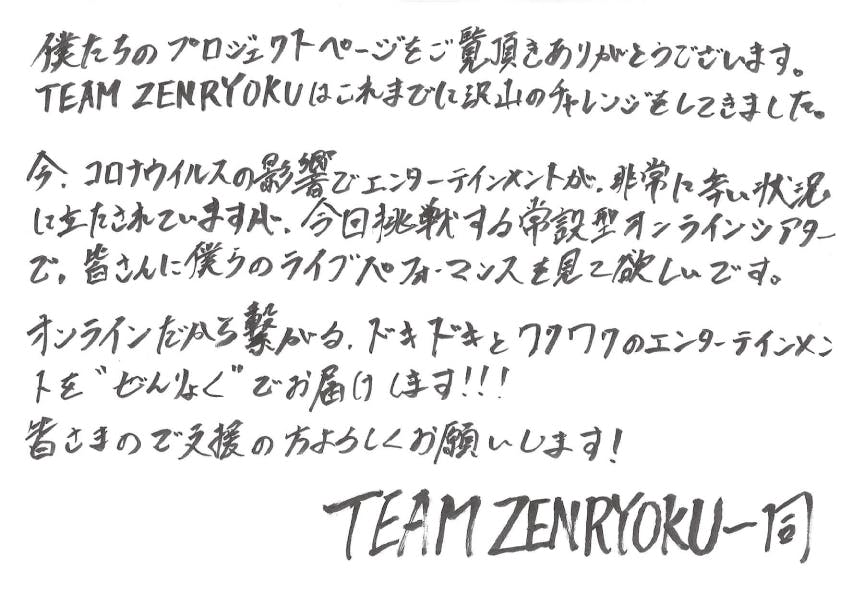 僕たちのプロジェクトページをご覧頂きありがとうございます。
TEAM ZENRYOKUはこれまでに沢山のチャレンジをしてきました。
今、コロナウイルスの影響でエンターテインメントが、非常に辛い状況
に立たされていますが、今回挑戦する常設型オンラインシアター
で、皆さんに僕らのライブパフォーマンスを見て欲しいです。
オンラインだから繋がる、ドキドキとワクワクのエンターテインメン
トを"ぜんりょく"でお届けします!!!
皆さまのご支援の方よろしくお願いします!
TEAM ZENRYOKU一同